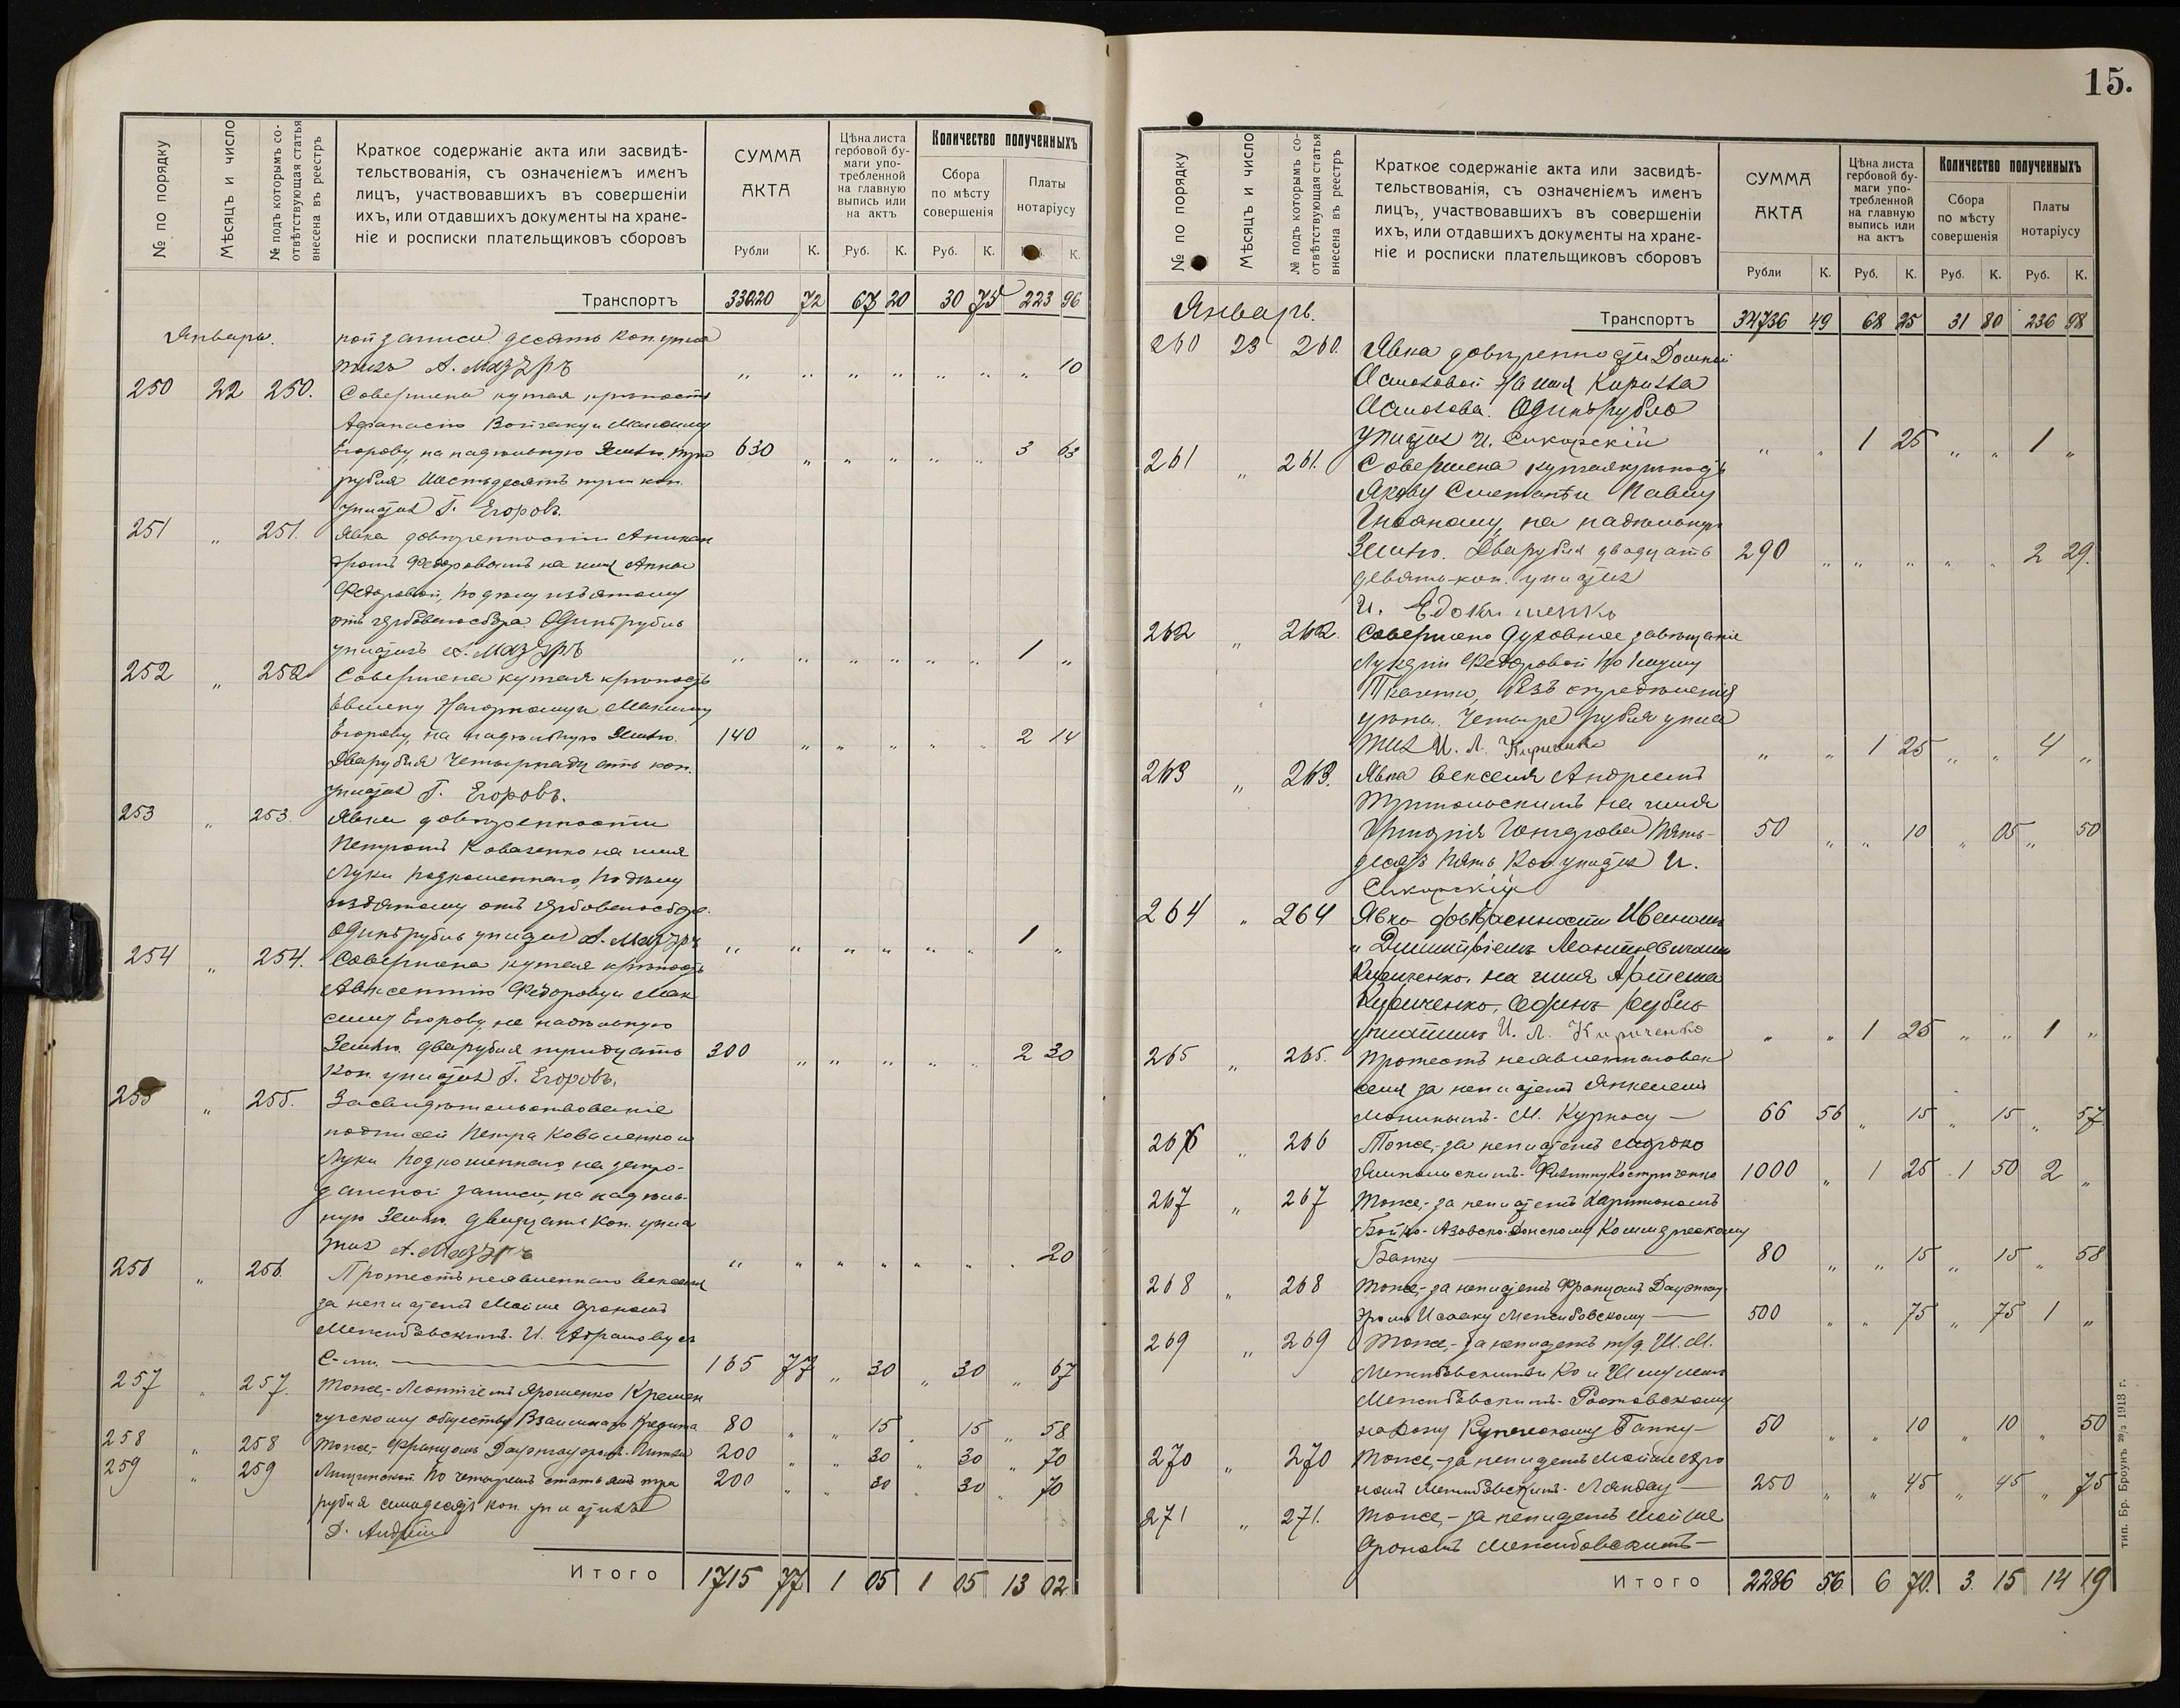 15.
№ по порядку
Мѣсяцъ и число
№ подъ которымъ со-
отвѣтствующая статья
внесена въ реестръ
Краткое содержаніе акта или засвидѣ-
тельствованія, съ означеніемъ именъ
лицъ, участвовавшихъ въ совершеніи
ихъ, или отдавшихъ документы на хране-
ніе и росписки плательщиковъ сборовъ
СУММА
АКТА
Рубли К.
Цѣна листа
гербовой бу-
маги упо-
требленной
на главную
выпись или
на актъ
Руб. К.
Количество полученныхъ
Сбора
по мѣсту
совершенія
Руб. К.
Платы
нотаріусу
К.
Транспортъ 33020 72 67 20 30 75 223 96
Январь. ной записи десять коп. упла
тилъ А. Мазуръ " " " " " " " 10
250 22 250. Совершена купчая крѣпость
Афанасію Войтаку и Максиму
Егорову, на надѣльную землю, три 630 " " " " " 3 63
рубля шестьдесятъ три коп.
уплатилъ Г. Егоровъ.
251 " 251. Явка довѣренности Аникан
дромъ Федоровымъ на имя Анны
Федоровой, по дѣлу изъятому
отъ гербоваго сбора. Одинъ рубль
уплатилъ А. Мазуръ " " " " " " 1 "
252 " 252 Совершена купчая крѣпость
Нагорному и Максиму
Егорову, на надѣльную землю. 140 " " " " " 2 14
Два рубля четырнадцать коп.
уплатилъ Г. Егоровъ.
253 " 253. Явка довѣренности
Петромъ Коваленко на имя
Луки Подкошеннаго, по дѣлу
изъятому отъ гербоваго сбора.
Одинъ рубль уплатилъ А. Мазуръ " " " " " " 1 "
254 " 254. Совершена купчая крѣпость
Авксентію Федорову и Мак
симу Егорову, на надѣльную
землю. два рубля тридцать 300 " " " " " 2 30
коп. уплатилъ Г. Егоровъ.
255 " 255. Засвидѣтельствованіе
подписей Петра Коваленко и
Луки Подкошеннаго, на запро-
данной записи, на надѣль-
ную землю. двадцать коп. упла
тилъ А. Мазуръ " " " " " " " 20
256 " 256. Протестъ неявленнаго векселя
за неплатежъ Мойше Арономъ
Межибовскимъ. И. Абрамову съ
С-ми. 165 77 " 30 " 30 " 67
257 " 257. Тоже,- Леонтіемъ Ярошенко Кремен
чугскому обществу Взаимнаго Кредита 80 " " 15 " 15 " 58
258 " 258 Тоже,- Францомъ 200 " " 30 " 30 " 70
259 " 259 По четыремъ статьямъ три 200 " " 30 " 30 " 70
рубля семьдесятъ коп. уплатилъ
Итого 1715 77 1 05 1 05 13 02
№
по порядку
Мѣсяцъ и число
№ подъ которымъ со-
отвѣтствующая статья
внесена въ реестръ
Краткое содержаніе акта или засвидѣ-
тельствованія, съ означеніемъ именъ
лицъ, участвовавшихъ въ совершеніи
ихъ, или отдавшихъ документы на хране-
ніе и росписки плательщиковъ сборовъ
СУММА
АКТА
Рубли К.
Цѣна листа
гербовой бу-
маги упо-
требленной
на главную
выпись или
на актъ
Руб. К.
Количество полученныхъ
Сбора
по мѣсту
совершенія
Руб. К.
Платы
нотаріусу
Руб. К.
Январь. Транспортъ 34736 49 68 25 31 80 236 98
260 23 260. Явка довѣренности
на имя Кирилла
Одинъ рубль
уплатилъ И. Сикорскій " " 1 25 " " 1 "
261 " 261. Совершена купчая крѣпость
Якову и Павлу
на надѣльную
землю. Два рубля двадцать 290 " " " " " 2 29.
девять коп. уплатилъ
И. Едокименко
262 " 262. Совершено духовное завѣщаніе
Лукеріи Федоровой
Ткаченко, безъ опредѣленія
цѣны. Четыре рубля упла
тилъ И. Л. Кириченко " " 1 25 " " 4 "
263 " 263. Явка векселя Андреемъ
на имя
Пять- 50 " " 10 " 05 " 50
десятъ пять коп. уплатилъ И.
Сикорскій
264 " 264 Явка довѣренности Иваномъ
и Димитріемъ Леонтьевичами
Кириченко, на имя Артема
Кириченко, Одинъ рубль
уплатилъ И. Л. Кириченко " " 1 25 " " 1 "
265 " 265. Протестъ неявленнаго век
селя за неплатежъ Янкелемъ
М. Курносу — 66 56 " 15 " 15 " 57
266 " 266 Тоже,- за неплатежъ
Филиппу Костриченко 1000 " 1 25 1 50 2 "
267 " 267 Тоже,- за неплатежъ Харитономъ
Бойко- Азовско-Донскому Коммерческому
Банку 80 " " 15 " 15 " 58
268 " 268 Тоже,- за неплатежъ Францомъ
Исааку Межибовскому — 500 " " 75 " 75 1 "
269 " 269 Тоже,- за неплатежъ т/д. Ш. М.
Межибовскимъ и Ко и
Межибовскимъ- Ростовскому
на Дону Купеческому Банку — 50 " " 10 " 10 " 50
270 " 270 Тоже,- за неплатежъ Мойше Аро
номъ Межибовскимъ- Ландау — 250 " " 45 " 45 " 75
271 " 271. Тоже,- за неплатежъ Мойше
Арономъ Межибовскимъ —
Итого 2286 56 6 70. 3. 15 14 19
тип. Бр. Броунъ 1913 г.